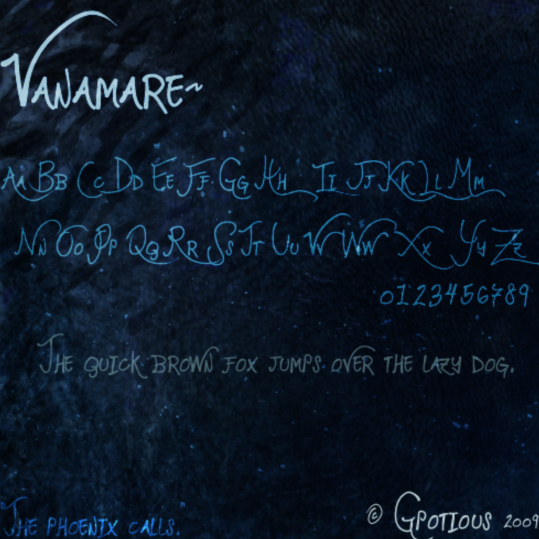 VANAMARE~
Aa Bb Cc Dd Ee Ff Gg Hh Ii Jj Kk Ll Mm
Nn Oo Pp Qq Rr Ss Tt Uu Vv Ww Xx Yy Zz
0123456789
THE QUICK BROWN FOX JUMPS OVER THE LAZY DOG.
"THE PHOENIX CALLS."
© GPOTIOUS 2009